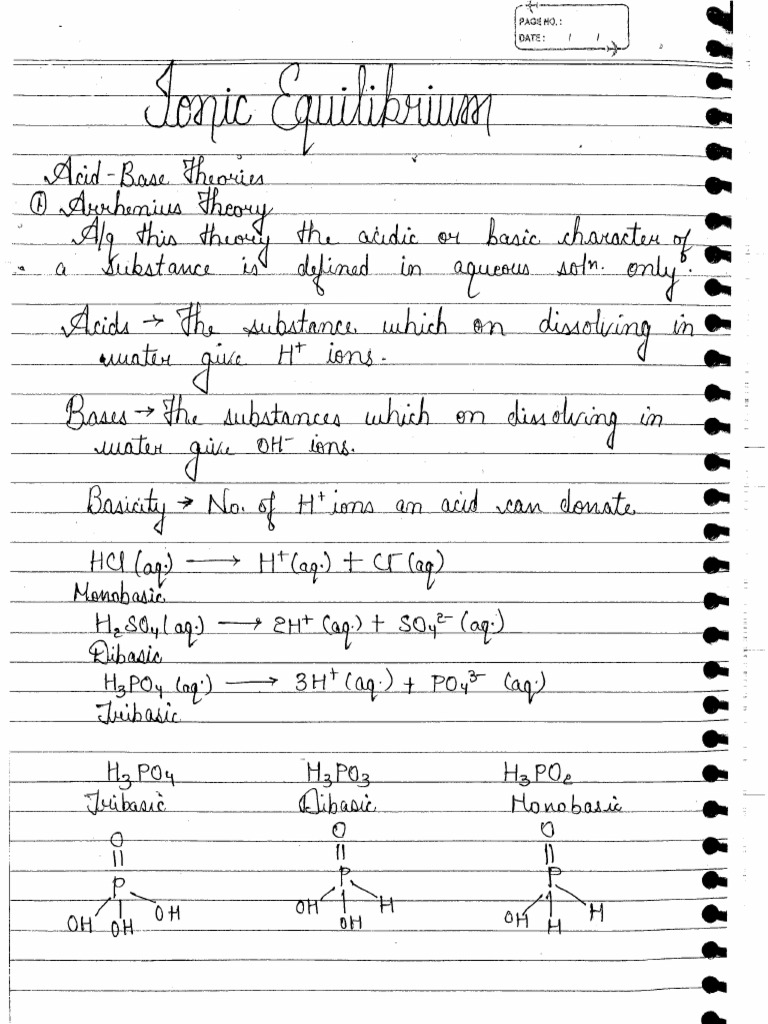 PAGE NO.:
DATE: / /
Ionic Equilibrium
Acid-Base Theories
① Arrhenius Theory
A/q this theory the acidic or basic character of
a substance is defined in aqueous solⁿ. only.
Acids → The substance which on dissolving in
water give H⁺ ions.
Bases → The substances which on dissolving in
water give OH⁻ ions.
Basicity → No. of H⁺ ions an acid can donate
HCl (aq.) ⟶ H⁺ (aq.) + Cl⁻ (aq)
Monobasic
H₂SO₄ (aq.) ⟶ 2H⁺ (aq.) + SO₄²⁻ (aq.)
Dibasic
H₃PO₄ (aq.) ⟶ 3H⁺ (aq.) + PO₄³⁻ (aq.)
Tribasic
H₃PO₄ H₃PO₃ H₃PO₂
Tribasic Dibasic Monobasic
O O O
P P P
OH OH OH OH OH H OH H H